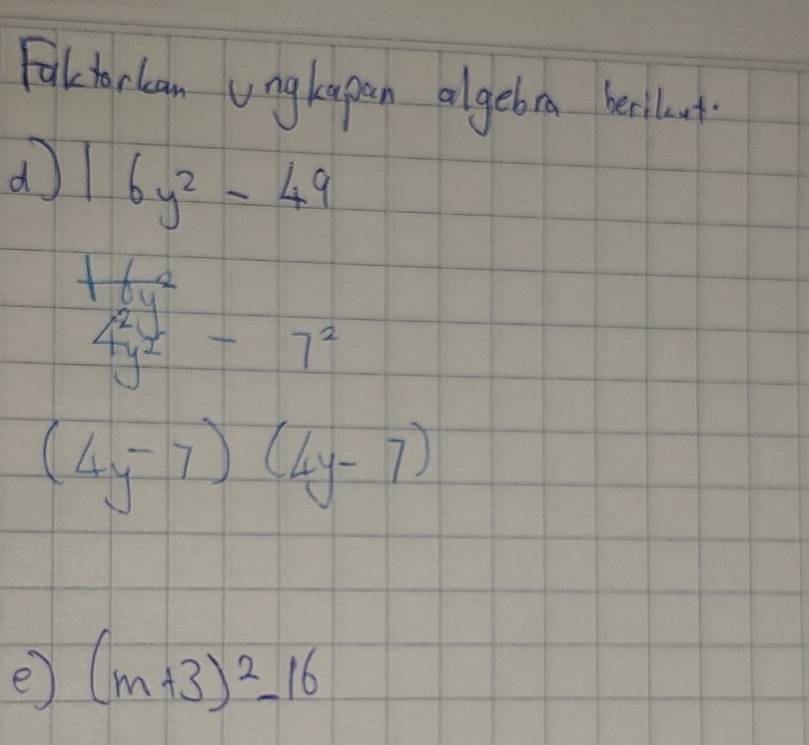 Faktorkan ungkapan algebra berikut.
d) 16y² - 49
16y²
4²y² - 7²
(4y - 7) (4y - 7)
e) (m+3)² - 16